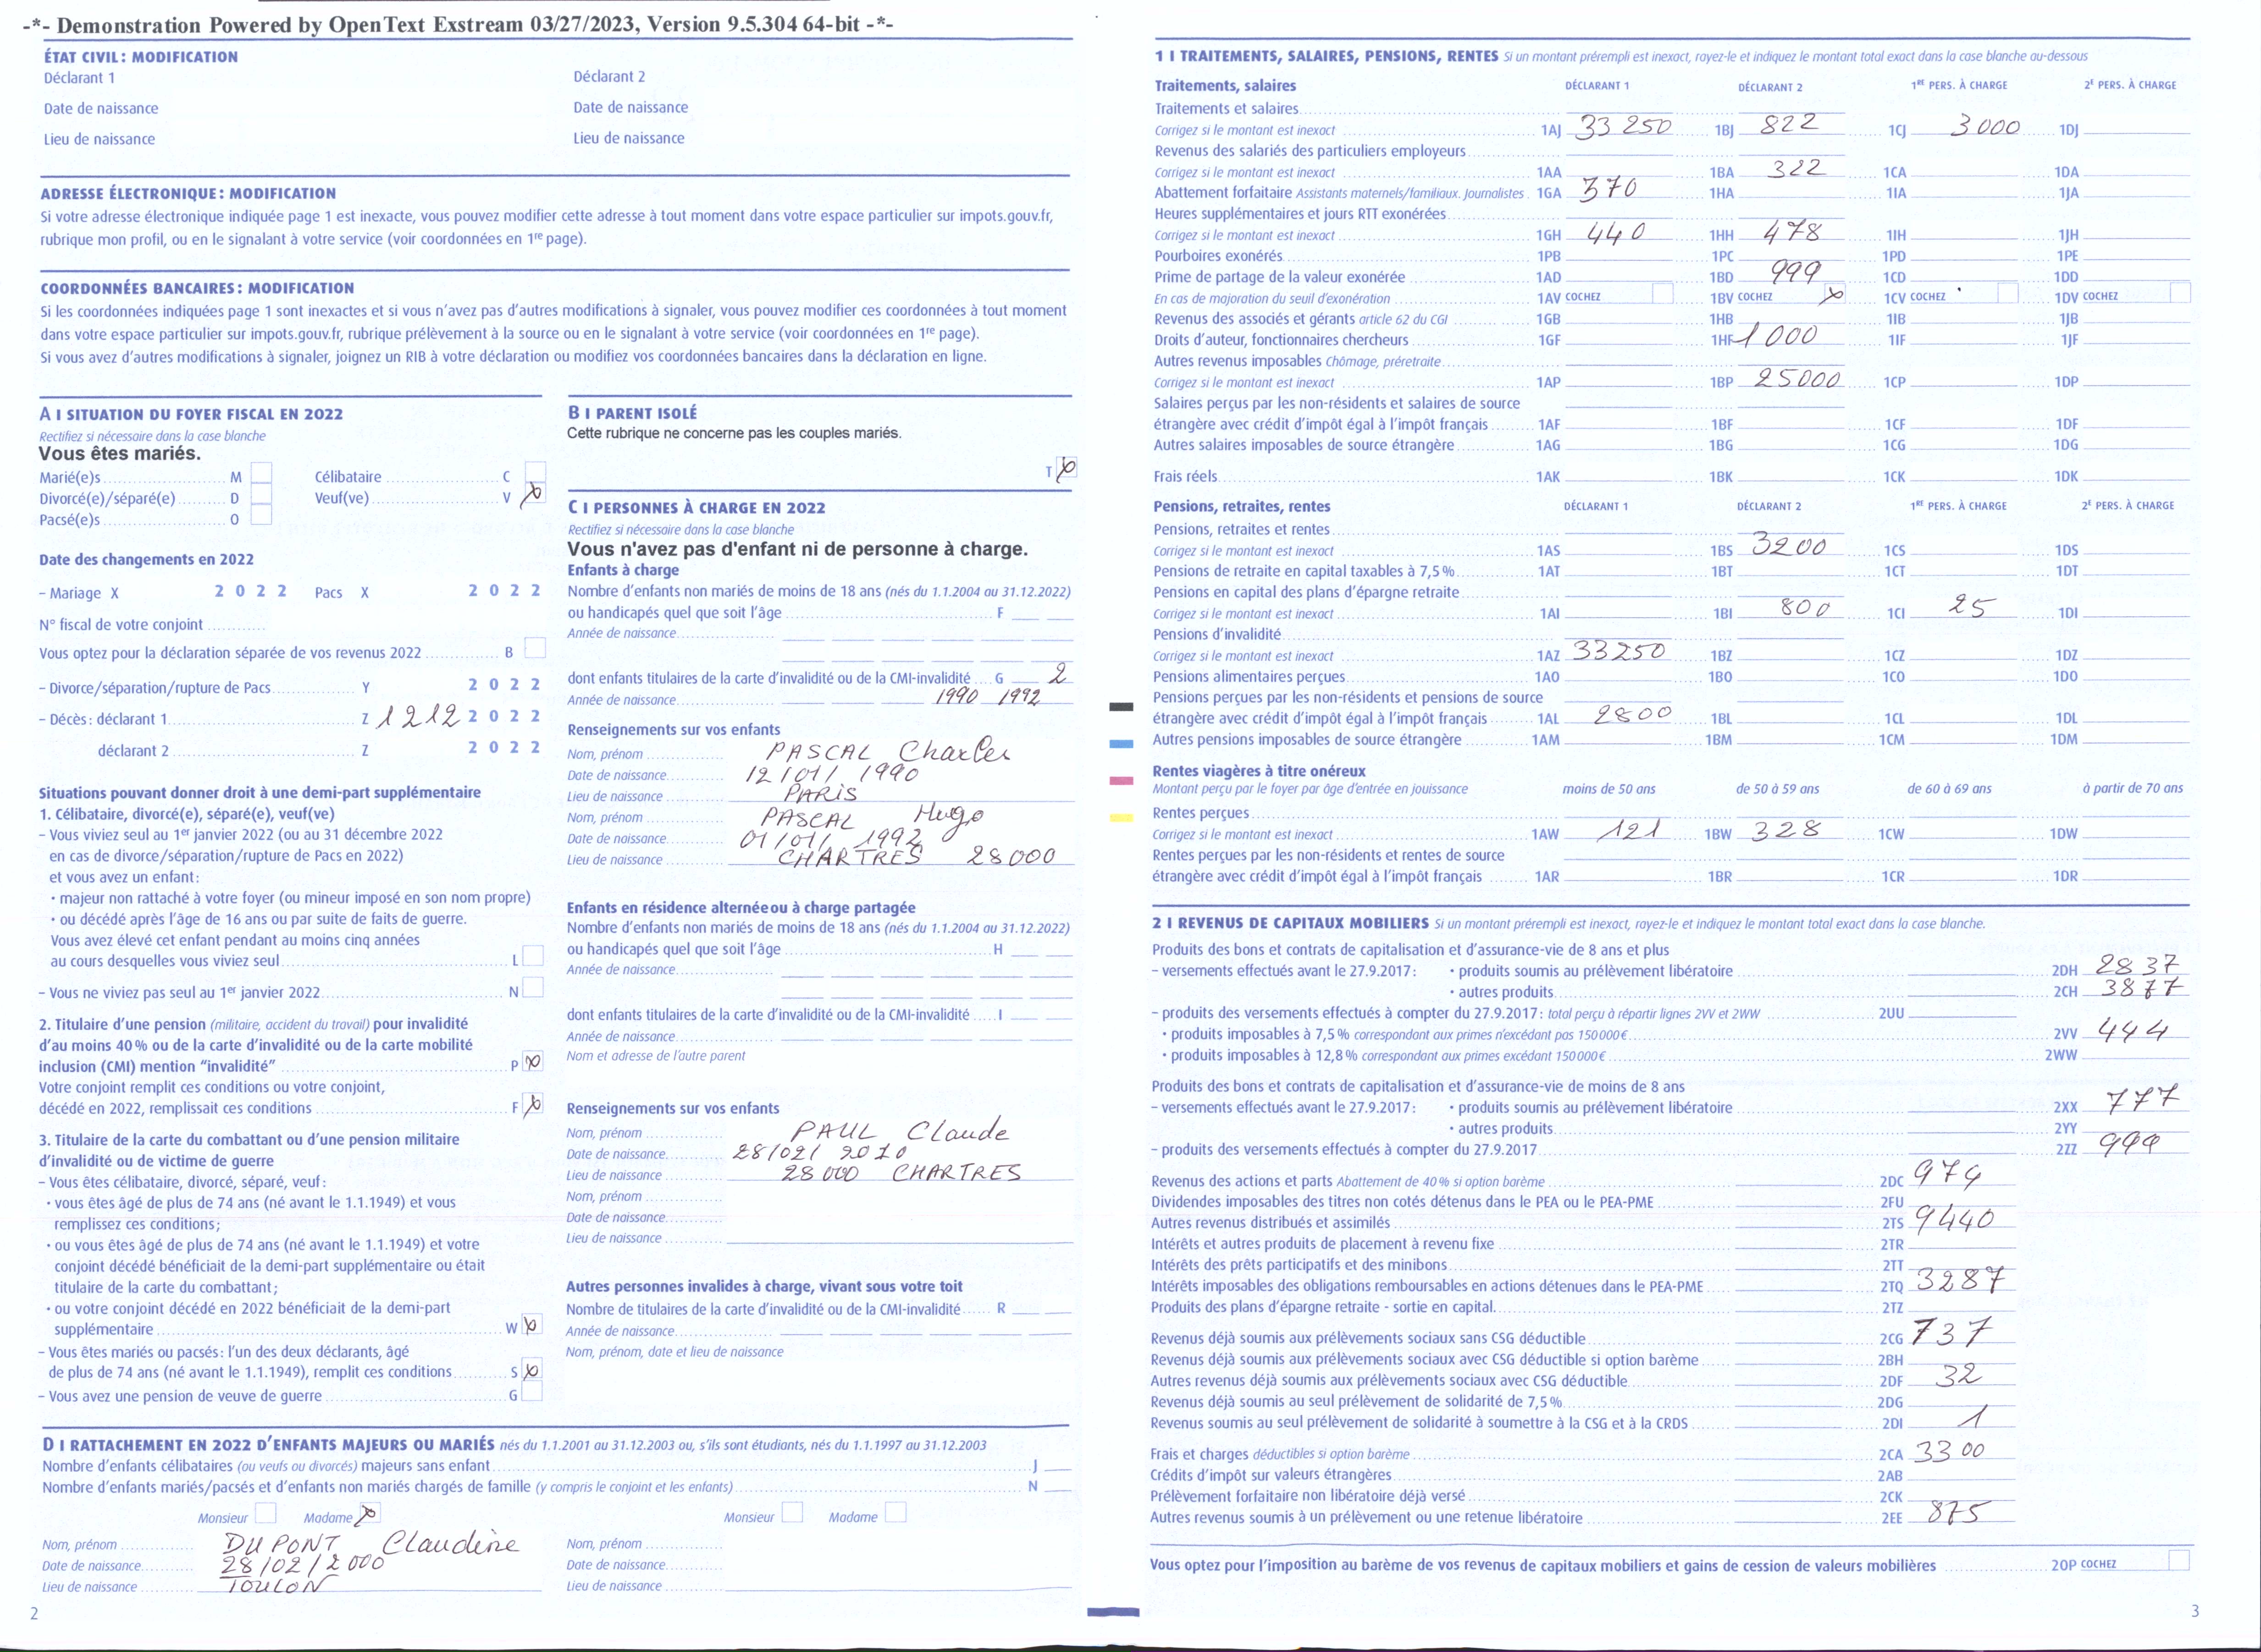 -*- Demonstration Powered by OpenText Exstream 03/27/2023, Version 9.5.304 64-bit -*-
ÉTAT CIVIL : MODIFICATION
Déclarant 1 Déclarant 2
Date de naissance Date de naissance
Lieu de naissance Lieu de naissance
ADRESSE ÉLECTRONIQUE : MODIFICATION
Si votre adresse électronique indiquée page 1 est inexacte, vous pouvez modifier cette adresse à tout moment dans votre espace particulier sur impots.gouv.fr,
rubrique mon profil, ou en le signalant à votre service (voir coordonnées en 1re page).
COORDONNÉES BANCAIRES : MODIFICATION
Si les coordonnées indiquées page 1 sont inexactes et si vous n'avez pas d'autres modifications à signaler, vous pouvez modifier ces coordonnées à tout moment
dans votre espace particulier sur impots.gouv.fr, rubrique prélèvement à la source ou en le signalant à votre service (voir coordonnées en 1re page).
Si vous avez d'autres modifications à signaler, joignez un RIB à votre déclaration ou modifiez vos coordonnées bancaires dans la déclaration en ligne.
A I SITUATION DU FOYER FISCAL EN 2022
Rectifiez si nécessaire dans la case blanche
Vous êtes mariés.
Marié(e)s M Célibataire C
Divorcé(e)/séparé(e) D Veuf(ve) V X
Pacsé(e)s O
Date des changements en 2022
– Mariage X 2 0 2 2 Pacs X 2 0 2 2
N° fiscal de votre conjoint
Vous optez pour la déclaration séparée de vos revenus 2022 B
– Divorce/séparation/rupture de Pacs Y 2 0 2 2
– Décès : déclarant 1 Z 1 2 1 2 2 0 2 2
déclarant 2 Z 2 0 2 2
Situations pouvant donner droit à une demi-part supplémentaire
1. Célibataire, divorcé(e), séparé(e), veuf(ve)
– Vous viviez seul au 1er janvier 2022 (ou au 31 décembre 2022
en cas de divorce/séparation/rupture de Pacs en 2022)
et vous avez un enfant :
• majeur non rattaché à votre foyer (ou mineur imposé en son nom propre)
• ou décédé après l'âge de 16 ans ou par suite de faits de guerre.
Vous avez élevé cet enfant pendant au moins cinq années
au cours desquelles vous viviez seul L
– Vous ne viviez pas seul au 1er janvier 2022 N
2. Titulaire d'une pension (militaire, accident du travail) pour invalidité
d'au moins 40 % ou de la carte d'invalidité ou de la carte mobilité
inclusion (CMI) mention “invalidité” P X
Votre conjoint remplit ces conditions ou votre conjoint,
décédé en 2022, remplissait ces conditions F X
3. Titulaire de la carte du combattant ou d'une pension militaire
d'invalidité ou de victime de guerre
– Vous êtes célibataire, divorcé, séparé, veuf :
• vous êtes âgé de plus de 74 ans (né avant le 1.1.1949) et vous
remplissez ces conditions ;
• ou vous êtes âgé de plus de 74 ans (né avant le 1.1.1949) et votre
conjoint décédé bénéficiait de la demi-part supplémentaire ou était
titulaire de la carte du combattant ;
• ou votre conjoint décédé en 2022 bénéficiait de la demi-part
supplémentaire W X
– Vous êtes mariés ou pacsés : l'un des deux déclarants, âgé
de plus de 74 ans (né avant le 1.1.1949), remplit ces conditions S X
– Vous avez une pension de veuve de guerre G
B I PARENT ISOLÉ
Cette rubrique ne concerne pas les couples mariés.
T X
C I PERSONNES À CHARGE EN 2022
Rectifiez si nécessaire dans la case blanche
Vous n'avez pas d'enfant ni de personne à charge.
Enfants à charge
Nombre d'enfants non mariés de moins de 18 ans (nés du 1.1.2004 au 31.12.2022)
ou handicapés quel que soit l'âge F
Année de naissance
dont enfants titulaires de la carte d'invalidité ou de la CMI-invalidité G 2
Année de naissance 1990 1992
Renseignements sur vos enfants
Nom, prénom PASCAL Charles
Date de naissance 12/01/1990
Lieu de naissance PARIS
Nom, prénom PASCAL Hugo
Date de naissance 01/01/1992
Lieu de naissance CHARTRES 28000
Enfants en résidence alternée ou à charge partagée
Nombre d'enfants non mariés de moins de 18 ans (nés du 1.1.2004 au 31.12.2022)
ou handicapés quel que soit l'âge H
Année de naissance
dont enfants titulaires de la carte d'invalidité ou de la CMI-invalidité I
Année de naissance
Nom et adresse de l'autre parent
Renseignements sur vos enfants
Nom, prénom PAUL Claude
Date de naissance 28/02/2010
Lieu de naissance 28000 CHARTRES
Nom, prénom
Date de naissance
Lieu de naissance
Autres personnes invalides à charge, vivant sous votre toit
Nombre de titulaires de la carte d'invalidité ou de la CMI-invalidité R
Année de naissance
Nom, prénom, date et lieu de naissance
D I RATTACHEMENT EN 2022 D'ENFANTS MAJEURS OU MARIÉS nés du 1.1.2001 au 31.12.2003 ou, s'ils sont étudiants, nés du 1.1.1997 au 31.12.2003
Nombre d'enfants célibataires (ou veufs ou divorcés) majeurs sans enfant J
Nombre d'enfants mariés/pacsés et d'enfants non mariés chargés de famille (y compris le conjoint et les enfants) N
Monsieur Madame X Monsieur Madame
Nom, prénom DUPONT Claudine Nom, prénom
Date de naissance 28/02/2000 Date de naissance
Lieu de naissance TOULON Lieu de naissance
2
1 I TRAITEMENTS, SALAIRES, PENSIONS, RENTES Si un montant prérempli est inexact, rayez-le et indiquez le montant total exact dans la case blanche au-dessous
Traitements, salaires DÉCLARANT 1 DÉCLARANT 2 1RE PERS. À CHARGE 2E PERS. À CHARGE
Traitements et salaires
Corrigez si le montant est inexact 1AJ 33 250 1BJ 822 1CJ 3000 1DJ
Revenus des salariés des particuliers employeurs
Corrigez si le montant est inexact 1AA 1BA 322 1CA 1DA
Abattement forfaitaire Assistants maternels/familiaux. Journalistes 1GA 370 1HA 1IA 1JA
Heures supplémentaires et jours RTT exonérées
Corrigez si le montant est inexact 1GH 440 1HH 478 1IH 1JH
Pourboires exonérés 1PB 1PC 1PD 1PE
Prime de partage de la valeur exonérée 1AD 1BD 999 1CD 1DD
En cas de majoration du seuil d'exonération 1AV COCHEZ 1BV COCHEZ X 1CV COCHEZ 1DV COCHEZ
Revenus des associés et gérants article 62 du CGI 1GB 1HB 1IB 1JB
Droits d'auteur, fonctionnaires chercheurs 1GF 1HF 1000 1IF 1JF
Autres revenus imposables Chômage, préretraite
Corrigez si le montant est inexact 1AP 1BP 25000 1CP 1DP
Salaires perçus par les non-résidents et salaires de source
étrangère avec crédit d'impôt égal à l'impôt français 1AF 1BF 1CF 1DF
Autres salaires imposables de source étrangère 1AG 1BG 1CG 1DG
Frais réels 1AK 1BK 1CK 1DK
Pensions, retraites, rentes DÉCLARANT 1 DÉCLARANT 2 1RE PERS. À CHARGE 2E PERS. À CHARGE
Pensions, retraites et rentes
Corrigez si le montant est inexact 1AS 1BS 3200 1CS 1DS
Pensions de retraite en capital taxables à 7,5 % 1AT 1BT 1CT 1DT
Pensions en capital des plans d'épargne retraite
Corrigez si le montant est inexact 1AI 1BI 800 1CI 25 1DI
Pensions d'invalidité
Corrigez si le montant est inexact 1AZ 33250 1BZ 1CZ 1DZ
Pensions alimentaires perçues 1AO 1BO 1CO 1DO
Pensions perçues par les non-résidents et pensions de source
étrangère avec crédit d'impôt égal à l'impôt français 1AL 2800 1BL 1CL 1DL
Autres pensions imposables de source étrangère 1AM 1BM 1CM 1DM
Rentes viagères à titre onéreux
Montant perçu par le foyer par âge d'entrée en jouissance moins de 50 ans de 50 à 59 ans de 60 à 69 ans à partir de 70 ans
Rentes perçues
Corrigez si le montant est inexact 1AW 121 1BW 328 1CW 1DW
Rentes perçues par les non-résidents et rentes de source
étrangère avec crédit d'impôt égal à l'impôt français 1AR 1BR 1CR 1DR
2 I REVENUS DE CAPITAUX MOBILIERS Si un montant prérempli est inexact, rayez-le et indiquez le montant total exact dans la case blanche.
Produits des bons et contrats de capitalisation et d'assurance-vie de 8 ans et plus
– versements effectués avant le 27.9.2017 : • produits soumis au prélèvement libératoire 2DH 2837
• autres produits 2CH 3877
– produits des versements effectués à compter du 27.9.2017 : total perçu à répartir lignes 2VV et 2WW 2UU
• produits imposables à 7,5 % correspondant aux primes n'excédant pas 150 000 € 2VV 444
• produits imposables à 12,8 % correspondant aux primes excédant 150 000 € 2WW
Produits des bons et contrats de capitalisation et d'assurance-vie de moins de 8 ans
– versements effectués avant le 27.9.2017 : • produits soumis au prélèvement libératoire 2XX 777
• autres produits 2YY
– produits des versements effectués à compter du 27.9.2017 2ZZ 999
Revenus des actions et parts Abattement de 40 % si option barème 2DC 974
Dividendes imposables des titres non cotés détenus dans le PEA ou le PEA-PME 2FU
Autres revenus distribués et assimilés 2TS 9440
Intérêts et autres produits de placement à revenu fixe 2TR
Intérêts des prêts participatifs et des minibons 2TT
Intérêts imposables des obligations remboursables en actions détenues dans le PEA-PME 2TQ 3287
Produits des plans d'épargne retraite - sortie en capital 2TZ
Revenus déjà soumis aux prélèvements sociaux sans CSG déductible 2CG 737
Revenus déjà soumis aux prélèvements sociaux avec CSG déductible si option barème 2BH
Autres revenus déjà soumis aux prélèvements sociaux avec CSG déductible 2DF 32
Revenus déjà soumis au seul prélèvement de solidarité de 7,5 % 2DG
Revenus soumis au seul prélèvement de solidarité à soumettre à la CSG et à la CRDS 2DI 1
Frais et charges déductibles si option barème 2CA 3300
Crédits d'impôt sur valeurs étrangères 2AB
Prélèvement forfaitaire non libératoire déjà versé 2CK
Autres revenus soumis à un prélèvement ou une retenue libératoire 2EE 875
Vous optez pour l'imposition au barème de vos revenus de capitaux mobiliers et gains de cession de valeurs mobilières 2OP COCHEZ
3